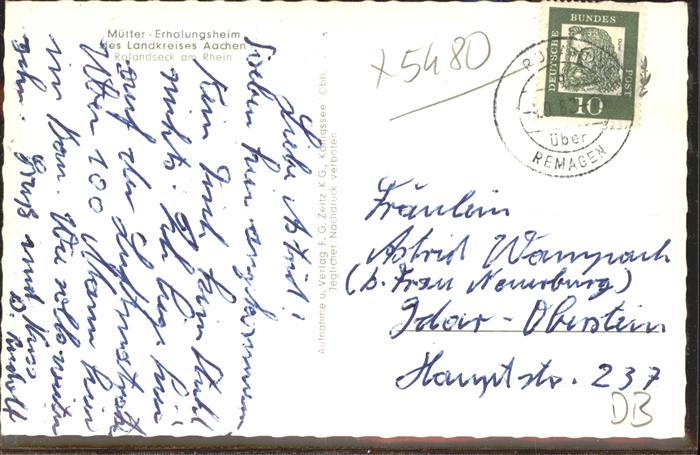 Mütter-Erholungsheim
des Landkreises Aachen
Rolandseck am Rhein
Liebe Astrid!
Soeben hier angekommen.
Kein Tisch, kein Stuhl
nichts. Ich liege hier
auf der Luftmatratze
Über 100 Mann hier
im Heim. Wir sollen
sehn. Gruß und Kuss
Aufnahme u. Verlag F. G. Zeitz K G., Königssee Obb.
Jeglicher Nachdruck verboten
x5480
DEUTSCHE BUNDES POST
Dürer
10
über
REMAGEN
Fräulein
Astrid Wampach
(b. Frau Neuerburg)
Idar-Oberstein
Hauptstr. 237
DB